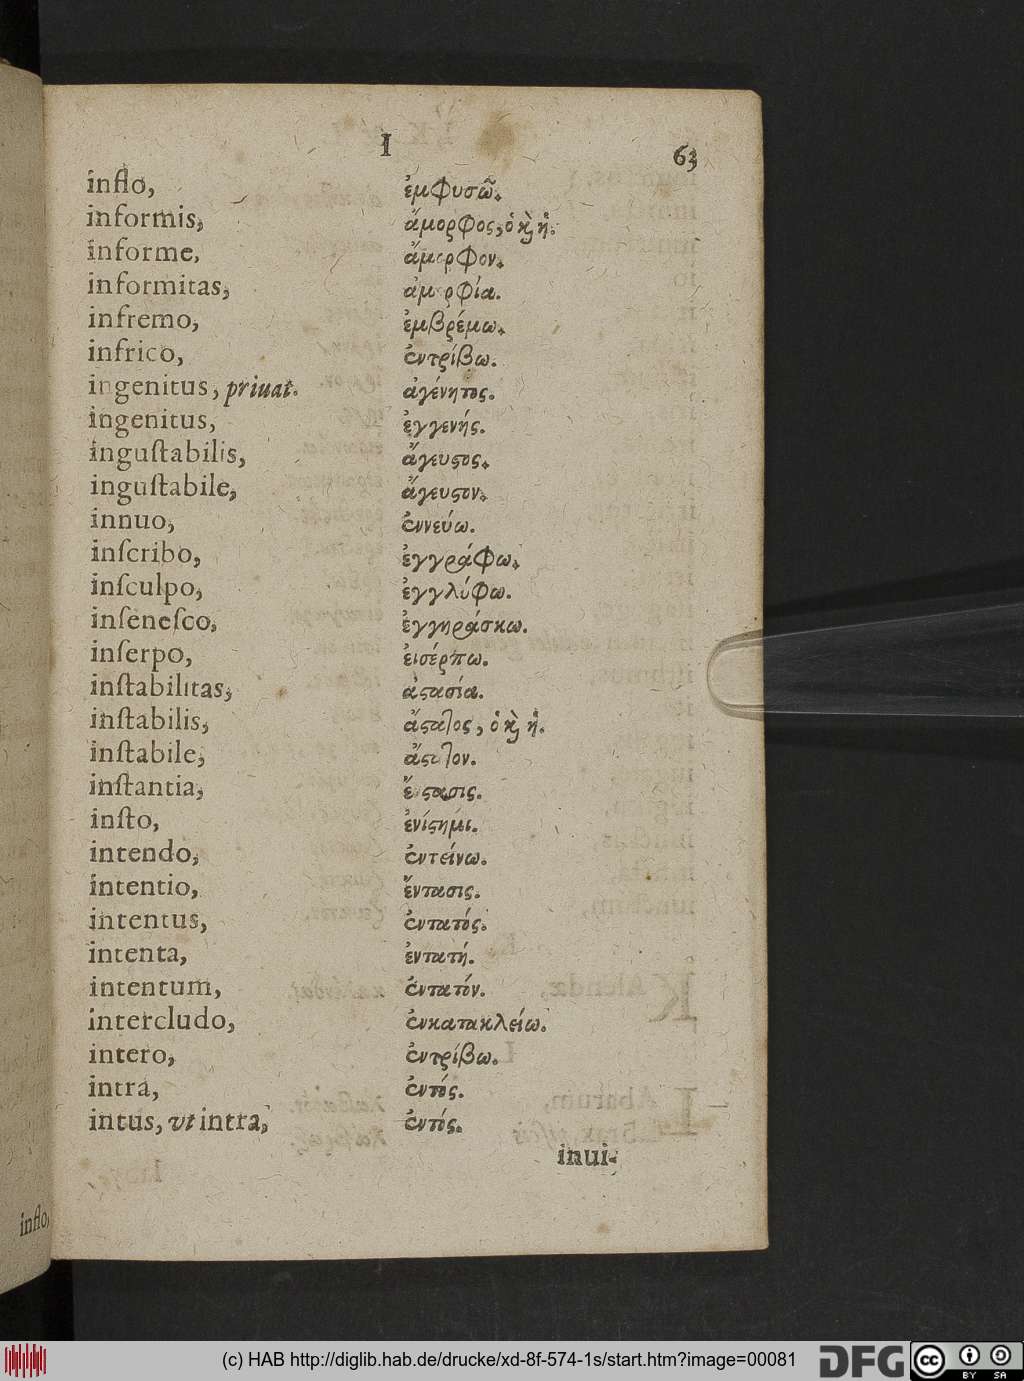 I 63
inflo, ἐμφυσῶ.
informis, ἄμορφος, ὁ κỳ ἡ.
informe, ἄμορφον.
informitas, ἀμορφία.
infremo, ἐμβρέμω.
infrico, ἐντρίβω.
ingenitus, priuat. ἀγένητος.
ingenitus, ἐγγενής.
inguſtabilis, ἄγευϛος.
inguſtabile, ἄγευϛον.
innuo, ἐννεύω.
inſcribo, ἐγγράφω.
inſculpo, ἐγγλύφω.
inſeneſco, ἐγγηράσκω.
inſerpo, ἐισέρπω.
inſtabilitas, ἀϛασία.
inſtabilis, ἄϛατος, ὁ κỳ ἡ.
inſtabile, ἄϛατον.
inſtantia, ἔνϛασις.
inſto, ἐνίϛημι.
intendo, ἐντείνω.
intentio, ἔντασις.
intentus, ἐντατός.
intenta, ἐντατή.
intentum, ἐντατόν.
intercludo, ἐνκατακλείω.
intero, ἐντρίβω.
intra, ἐντός.
intus, vt intra, ἐντός.
inui-
inflo,
(c) HAB http://diglib.hab.de/drucke/xd-8f-574-1s/start.htm?image=00081 DFG cc BY SA